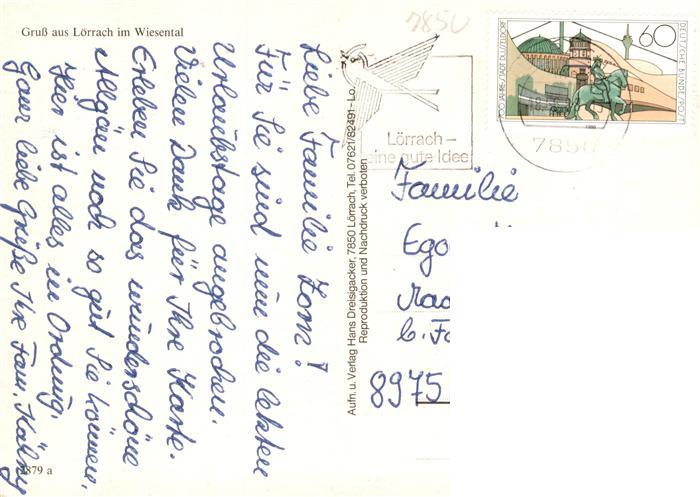 Gruß aus Lörrach im Wiesental
Liebe Familie Zorn!
Für Sie sind nun die letzten
Urlaubstage angebrochen.
Vielen Dank für Ihre Karte.
Erleben Sie das wunderschöne
Allgäu noch so gut Sie können.
Hier ist alles in Ordnung.
Ganz liebe Grüße Ihre Fam.
2879 a
Aufn. u. Verlag Hans Dreisigacker, 7850 Lörrach, Tel. 07621/82491 - Lo.
Reproduktion und Nachdruck verboten
7850
Lörrach –
eine gute Idee
7850
700 JAHRE STADT DÜSSELDORF
60
DEUTSCHE BUNDESPOST
Familie
Ego
8975